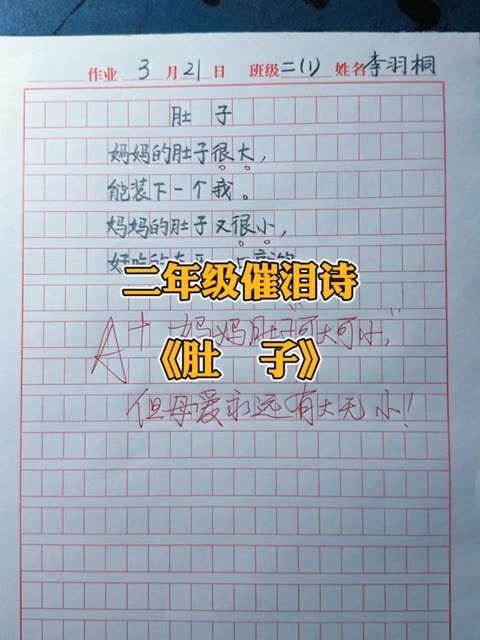 作业 3月21日 班级二(1) 姓名李羽桐
肚 子
妈妈的肚子很大，
能装下一个我。
妈妈的肚子又很小，
好吃的
二年级催泪诗
A+ 妈妈肚"可大可小，"
《肚 子》
但母爱永远有大无小！